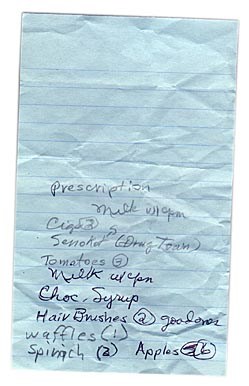 Prescription
Milk w/cpn
Cigs
Senokot (Drug Town)
Tomatoes (2)
Milk w/cpn
Choc. Syrup
Hair Brushes (2) good ones
waffles (1)
Spinach (2) Apples (6)